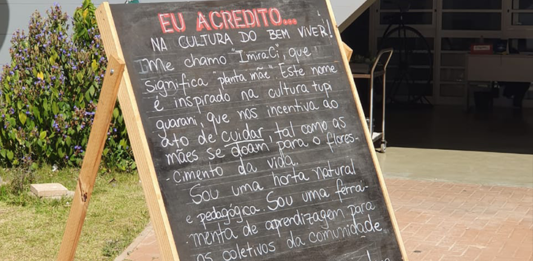 EU ACREDITO...
NA CULTURA DO BEM VIVER!
Me chamo "ImiraCi", que
significa "planta mãe". Este nome
é inspirado na cultura tupi
guarani, que nos incentiva ao
ato de cuidar, tal como as
mães se doam para o flores-
cimento da vida.
Sou uma horta natural
e pedagógica. Sou uma ferra-
menta de aprendizagem para
os coletivos da comunidade